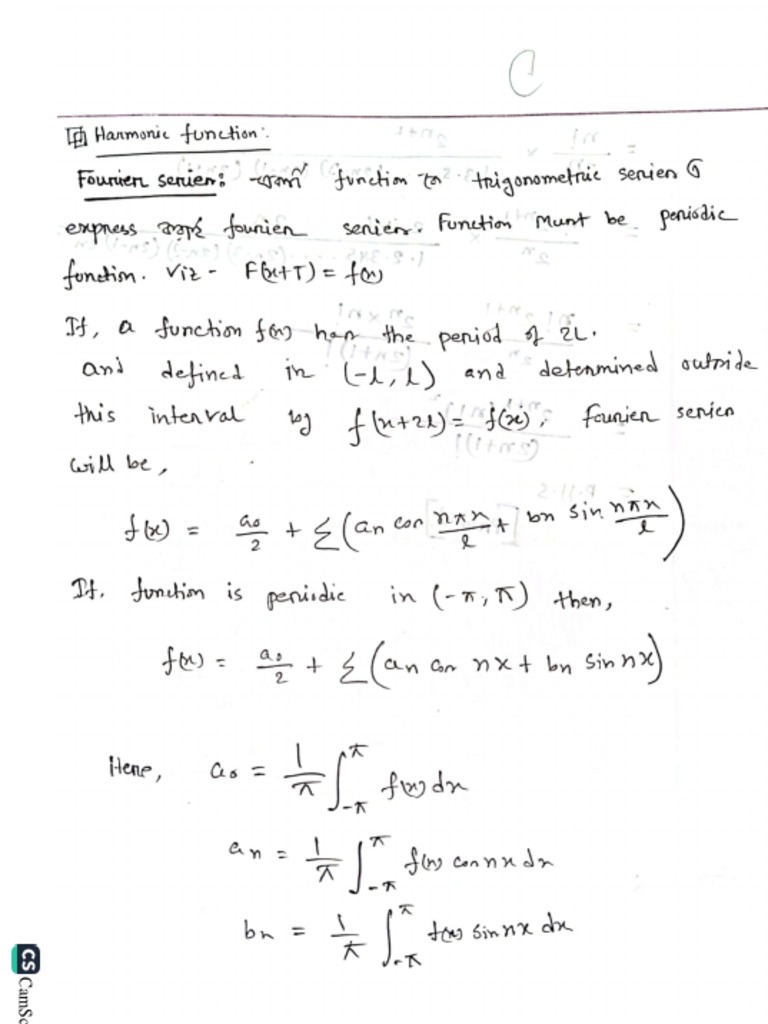 C
Harmonic function:
Fourier series: কোনো function কে trigonometric series এ
express করাই fourier series. Function must be periodic
function. Viz - F(x+T) = f(x)
If, a function f(x) has the period of 2L.
and defined in (-l, l) and determined outside
this interval by f(x+2l) = f(x), fourier series
will be,
f(x) = a₀/2 + Σ(an cos nπx/l + bn sin nπx/l)
If. function is periodic in (-π, π) then,
f(x) = a₀/2 + Σ(an cos nx + bn sin nx)
Here, a₀ = 1/π ∫_{-π}^{π} f(x) dx
an = 1/π ∫_{-π}^{π} f(x) cos nx dx
bn = 1/π ∫_{-π}^{π} f(x) sin nx dx
CS CamSc